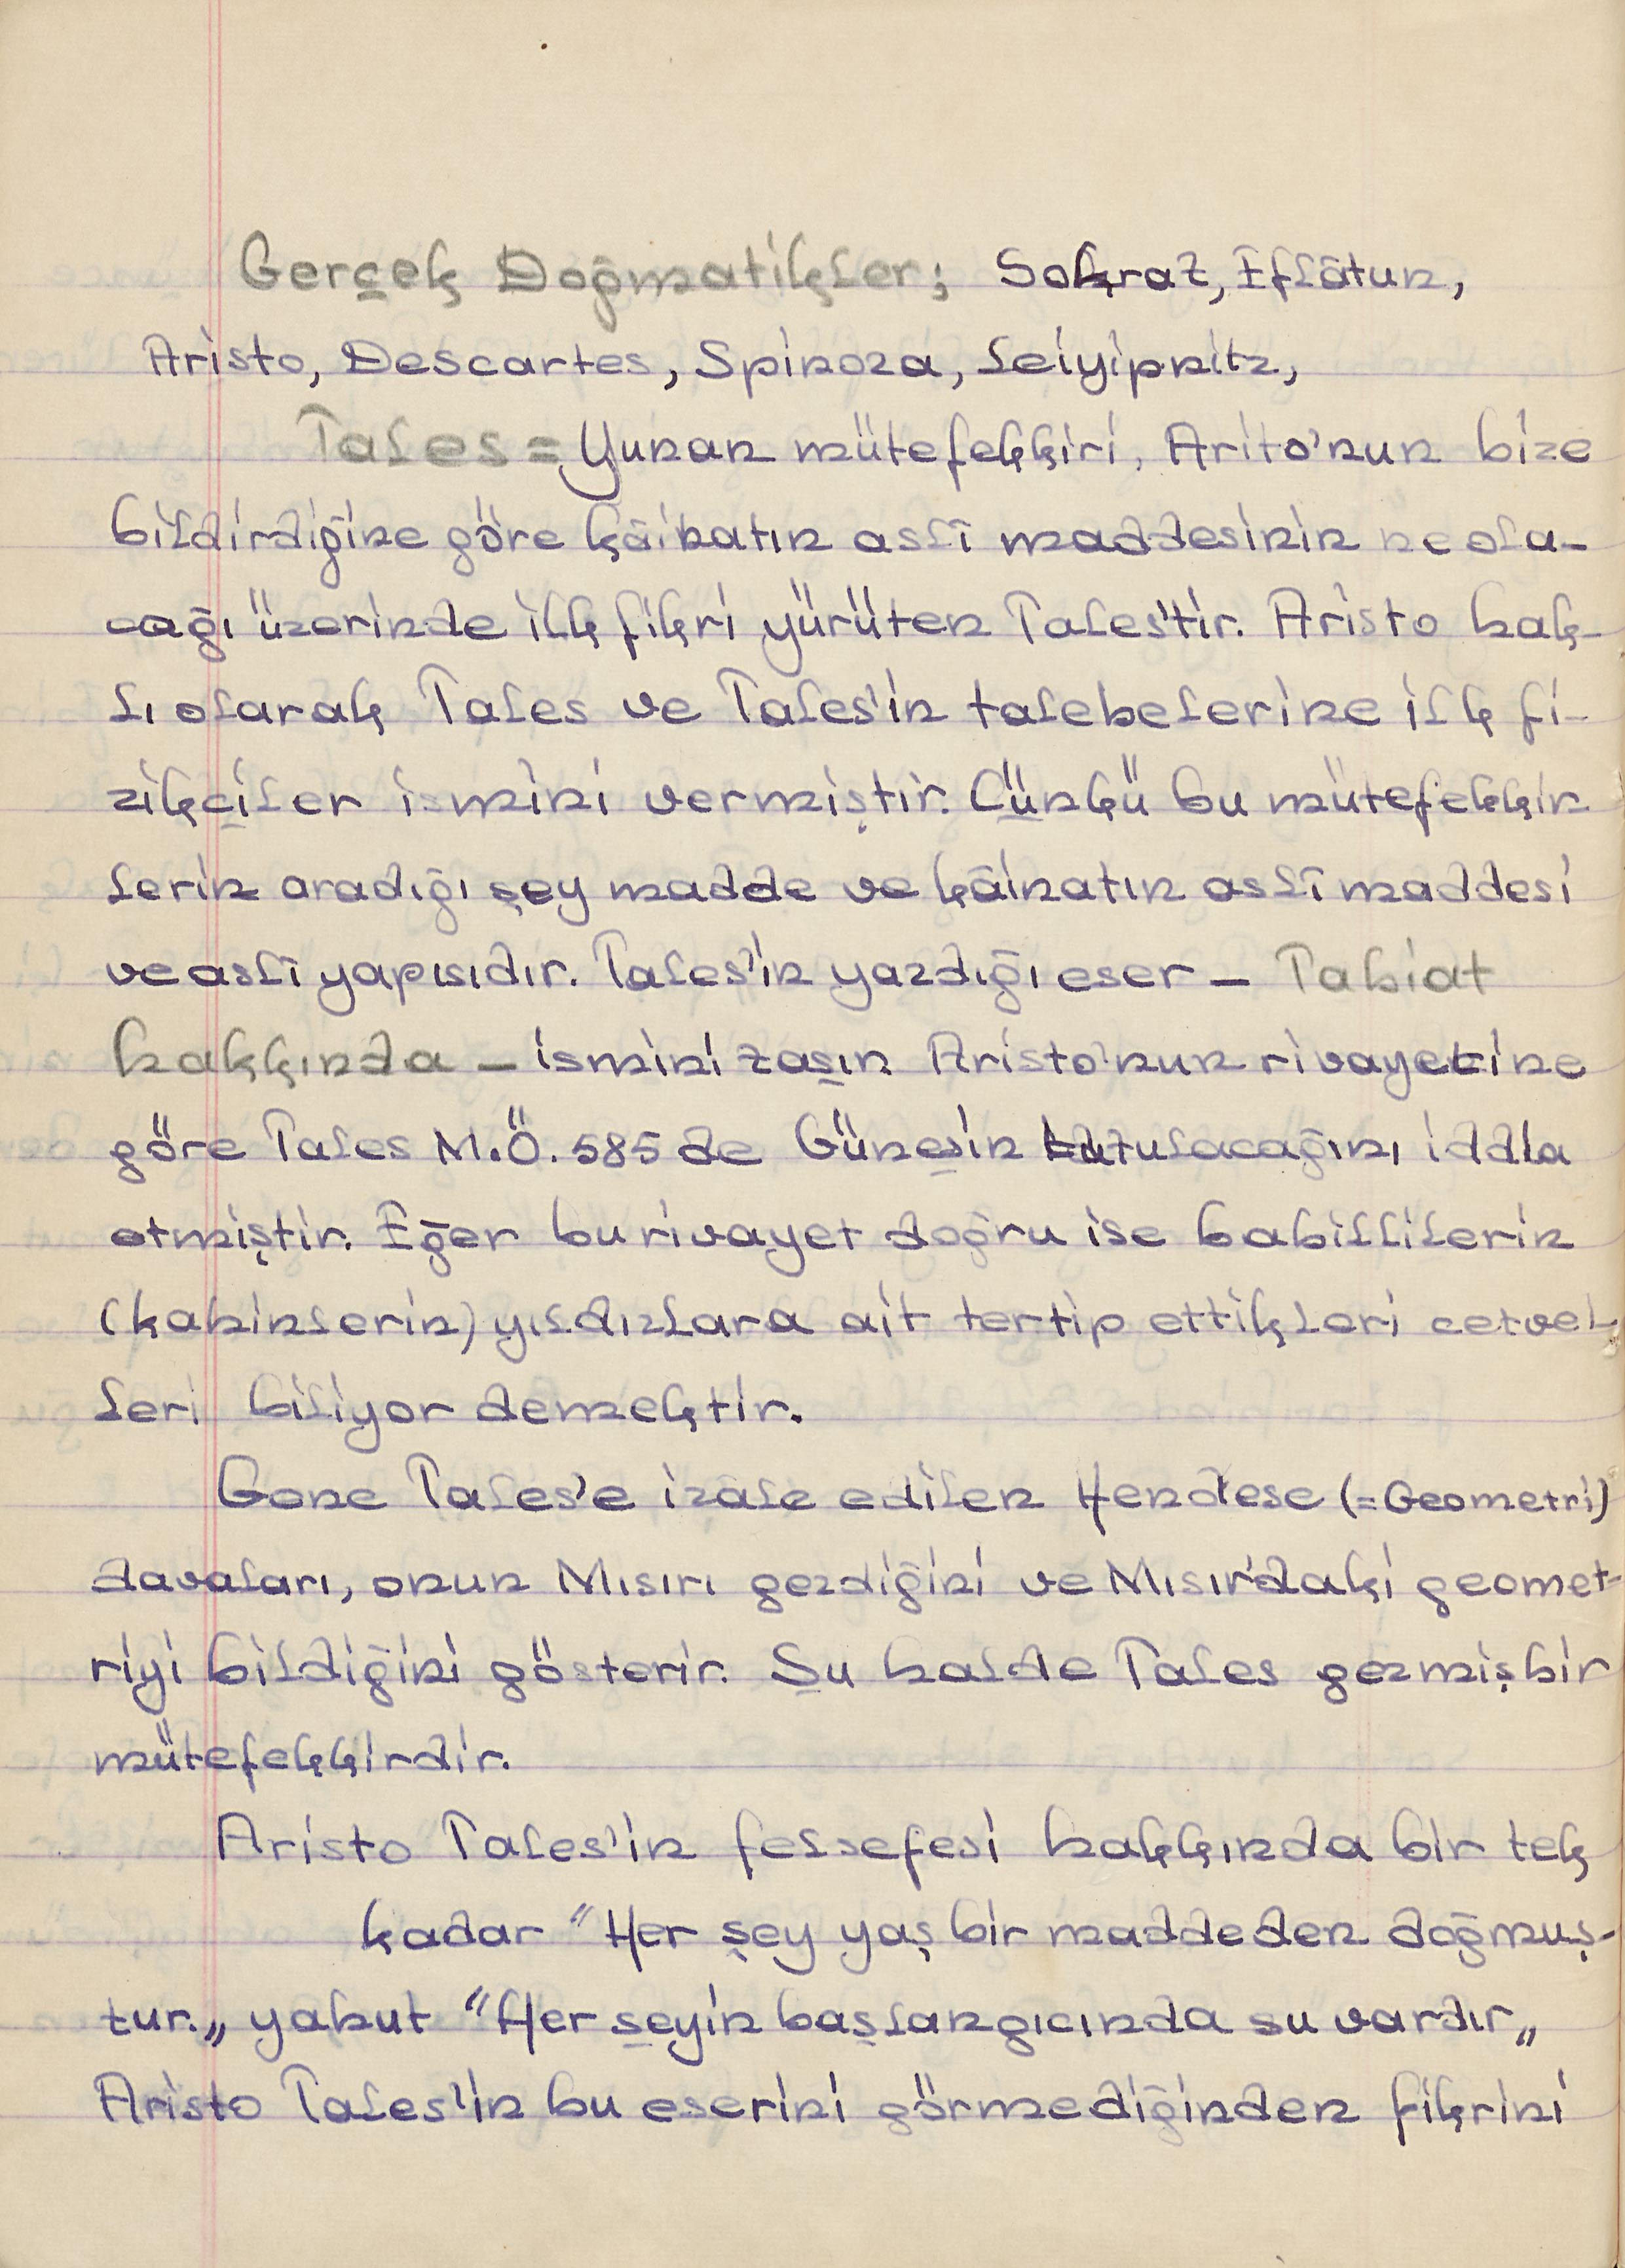 Gerçek Doğmatikler; Sokrat, Eflâtun,
Aristo, Descartes, Spinoza, Leiyipnitz,
Tales = Yunan mütefekkiri, Arito'nun bize
bildirdiğine göre kâinatın aslî maddesinin ne ola-
cağı üzerinde ilk fikri yürüten Tales'tir. Aristo hak-
lı olarak Tales ve Tales'in talebelerine ilk fi-
zikçiler ismini vermiştir. Çünkü bu mütefekkin
lerin aradığı şey madde ve kâinatın aslî maddesi
ve aslî yapısıdır. Tales'in yazdığı eser - Tabiat
hakkında - ismini taşın Aristo'nun rivayetine
göre Tales M.Ö. 585 de Güneşin tutulacağını iddia
etmiştir. Eğer bu rivayet doğru ise babillilerin
(kahinlerin) yıldızlara ait tertip ettikleri cetvel
leri biliyor demektir.
Gene Tales'e izale edilen Hendese (=Geometri)
davaları, onun Mısırı gezdiğini ve Mısır'daki geomet-
riyi bildiğini gösterir. Şu halde Tales gezmiş bir
mütefekkirdir.
Aristo Tales'in felsefesi hakkında bir tek
kadar "Her şey yaş bir maddeden doğmuş-
tur.„ yahut "Her şeyin başlangıcında su vardır„
Aristo Tales'in bu eserini görmediğinden fikrini